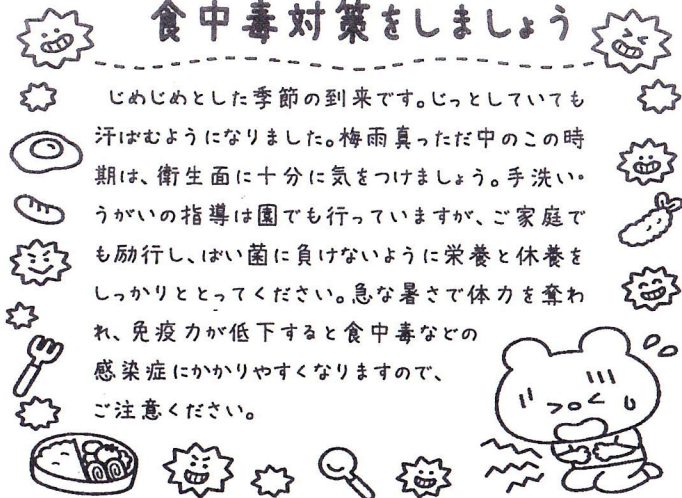 食中毒対策をしましょう
じめじめとした季節の到来です。じっとしていても
汗ばむようになりました。梅雨真っただ中のこの時
期は、衛生面に十分に気をつけましょう。手洗い・
うがいの指導は園でも行っていますが、ご家庭で
も励行し、ばい菌に負けないように栄養と休養を
しっかりととってください。急な暑さで体力を奪わ
れ、免疫力が低下すると食中毒などの
感染症にかかりやすくなりますので、
ご注意ください。